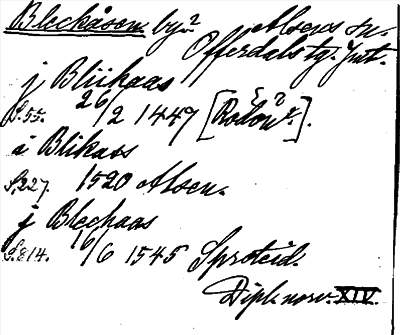 Bleckåsen by. Alsens sn.
Offerdals tg. Jmt.
j Bliikaas
S. 55. 26/2 1447 [Rödön].
å Blikass
S. 227. 1520 Alsen.
j Blechaas
S. 814. 16/6 1545
Dipl. norv. XIV.